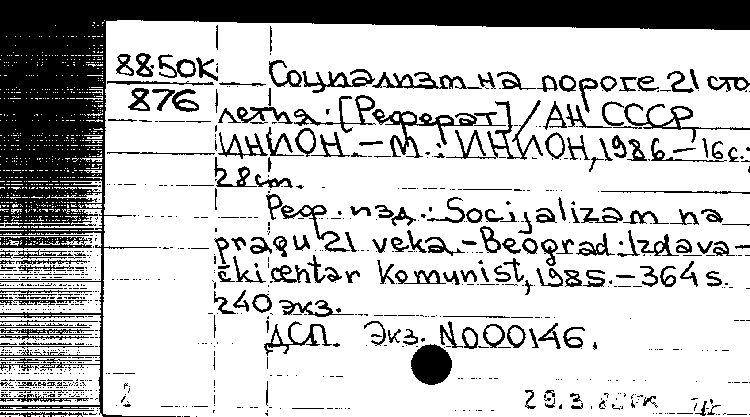 8850К
876
Социализм на пороге 21 сто
летия: [Реферат] / АН СССР,
ИНИОН. — М.: ИНИОН, 1986. — 16 с.;
28 cm.
Реф. изд.: Socijalizam na
pragu 21 veka. — Beograd: Izdava-
čki centar Komunist, 1985. — 364 s.
240 экз.
ДСП. Экз. N000146.
2